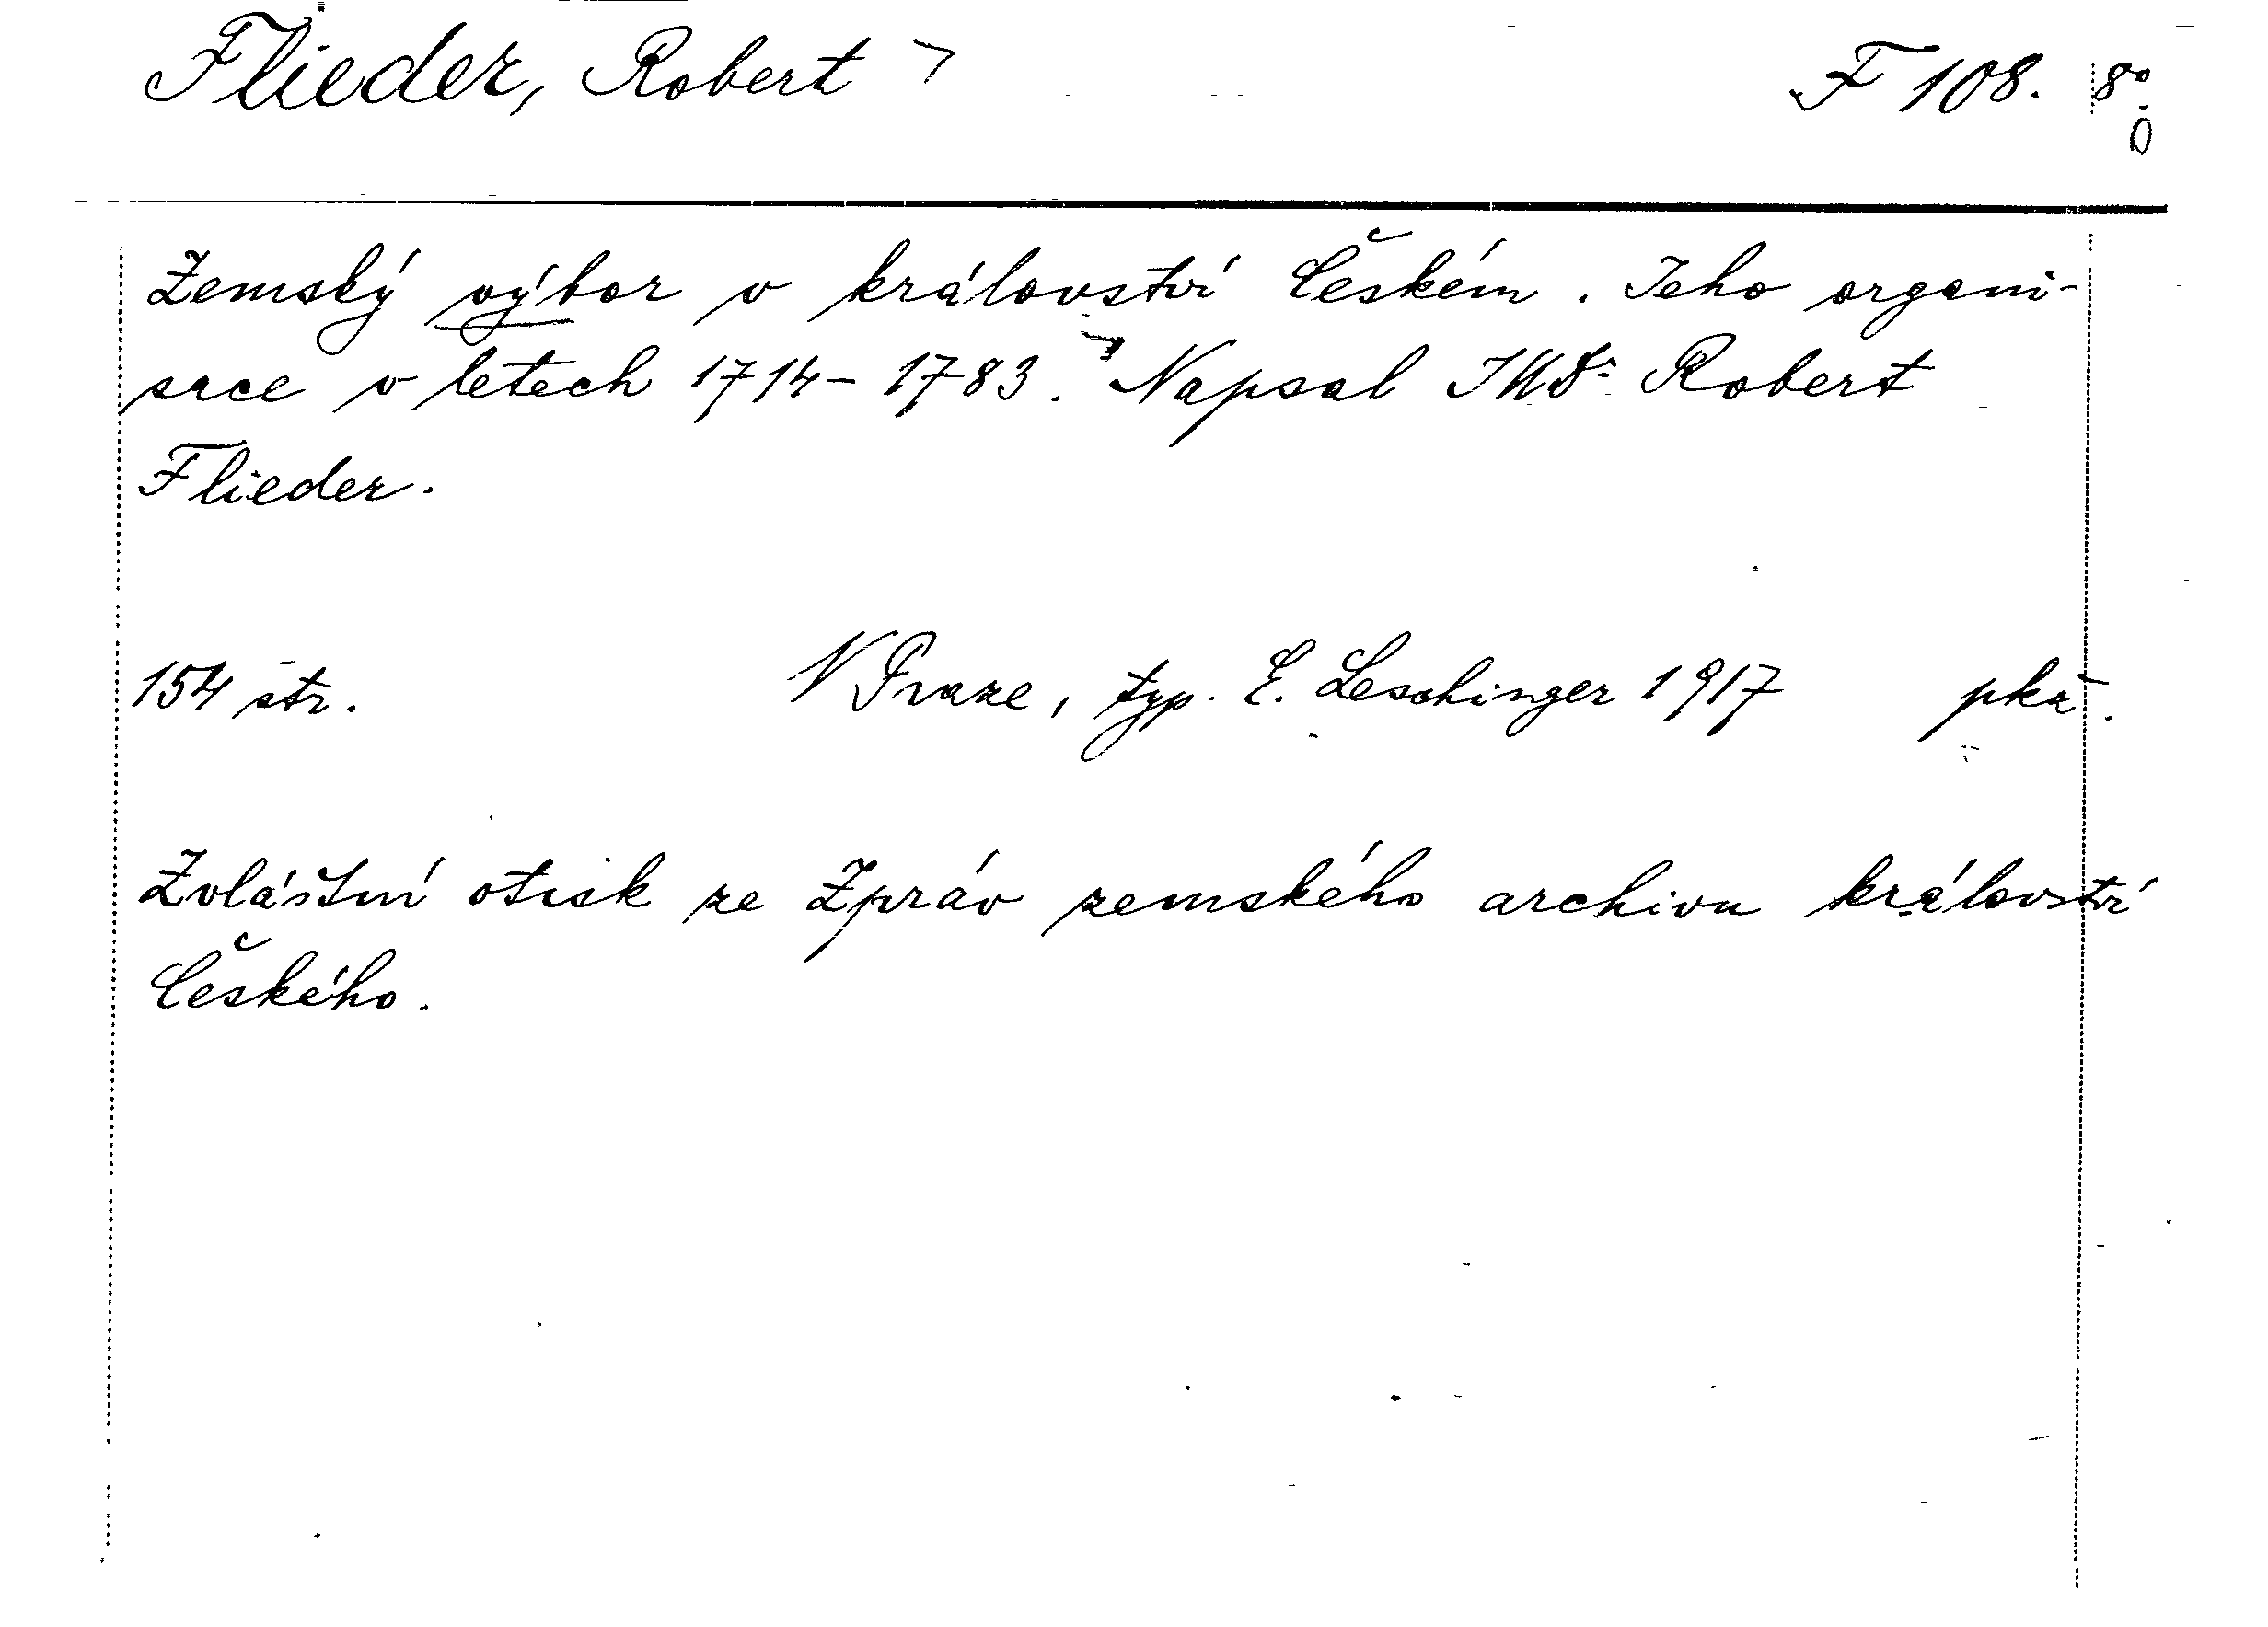 Flieder, Robert F 108. 8°
0
Zemský výbor v království Českém. Jeho organi-
sace v letech 1714-1783. Napsal JUDr Robert
Flieder.
154 str. V Praze, typ. E. Leschinger 1917
Zvláštní otisk ze Zpráv zemského archivu království
Českého.